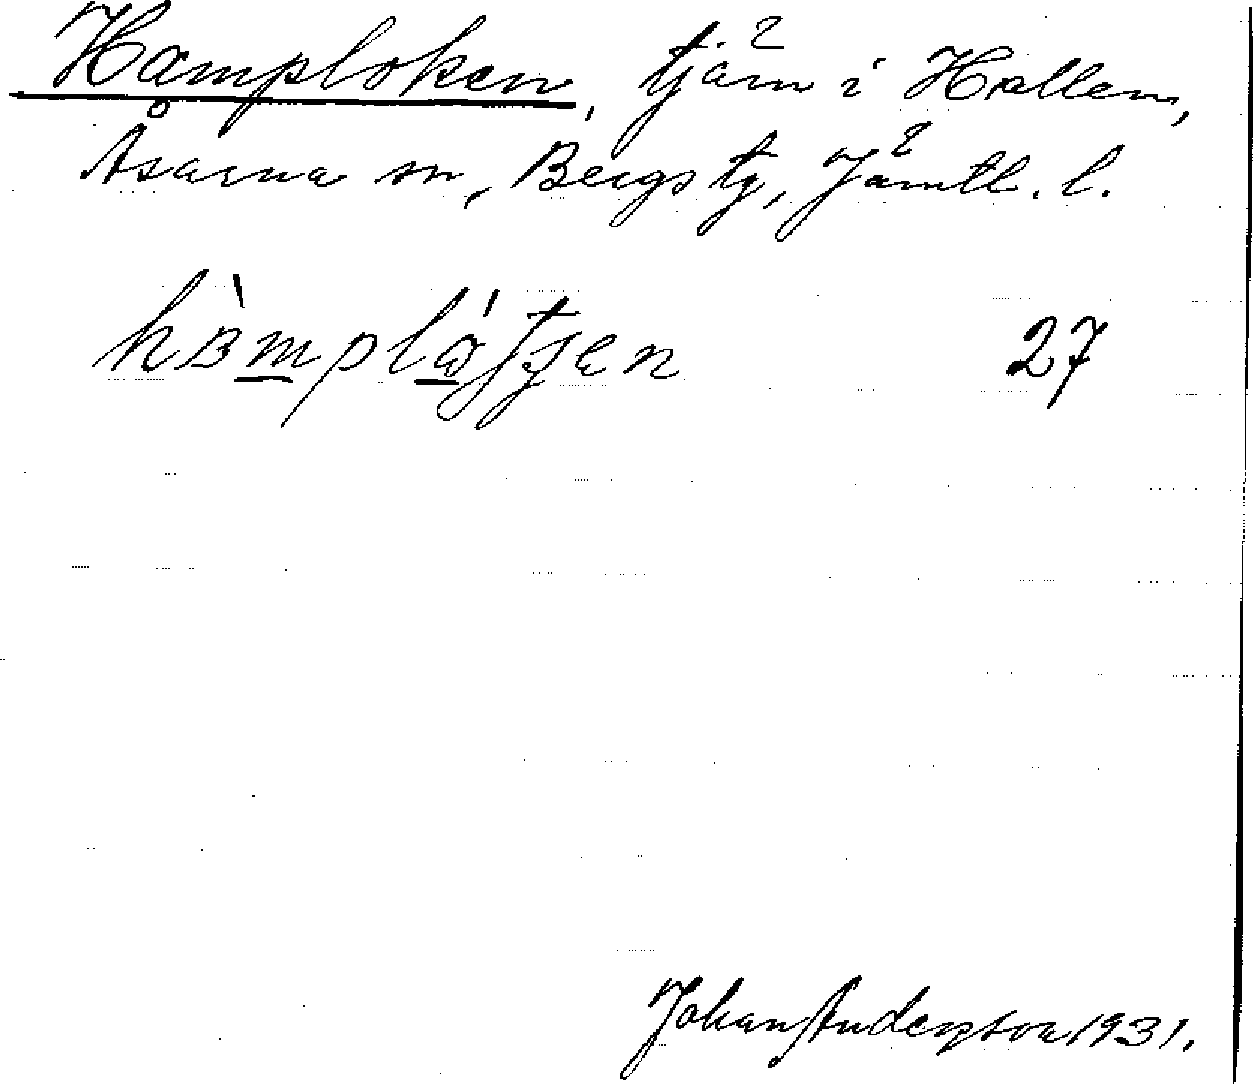 Hamploken, tjärn i Hallen,
Åsarna sn, Bergs tg, Jämtl. l.
27
Johan Anderson 1931.